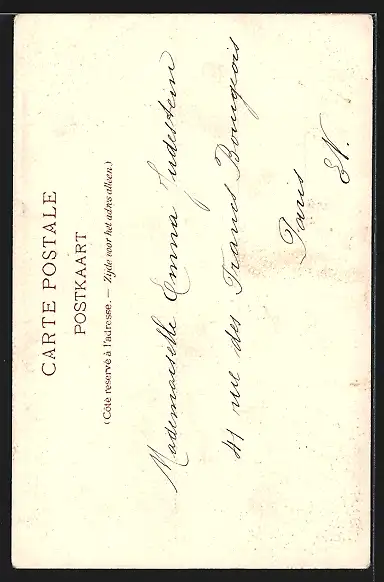 CARTE POSTALE
POSTKAART
(Côté reservé à l'adresse. — Zijde voor het adres alleen.)
Mademoiselle Emma Judestein
41 rue des Francs Bourgeois
Paris